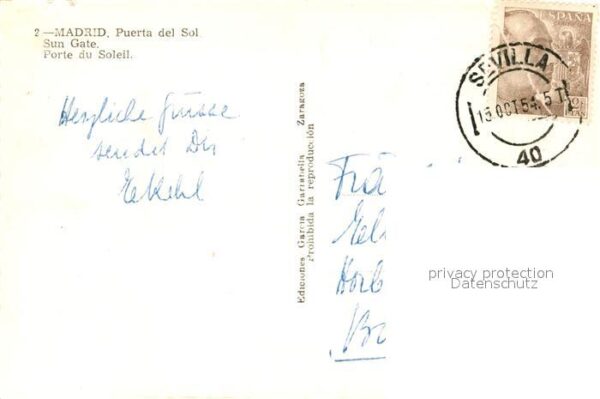 2 —MADRID. Puerta del Sol
Sun Gate.
Porte du Soleil.
Herzliche Grüsse
sendet Dir
Ediciones García Garrabella Zaragoza
Prohibida la reproducción
ESPAÑA
PTAS
SEVILLA
13 OCT 54. 5 T
40
privacy protection
Datenschutz